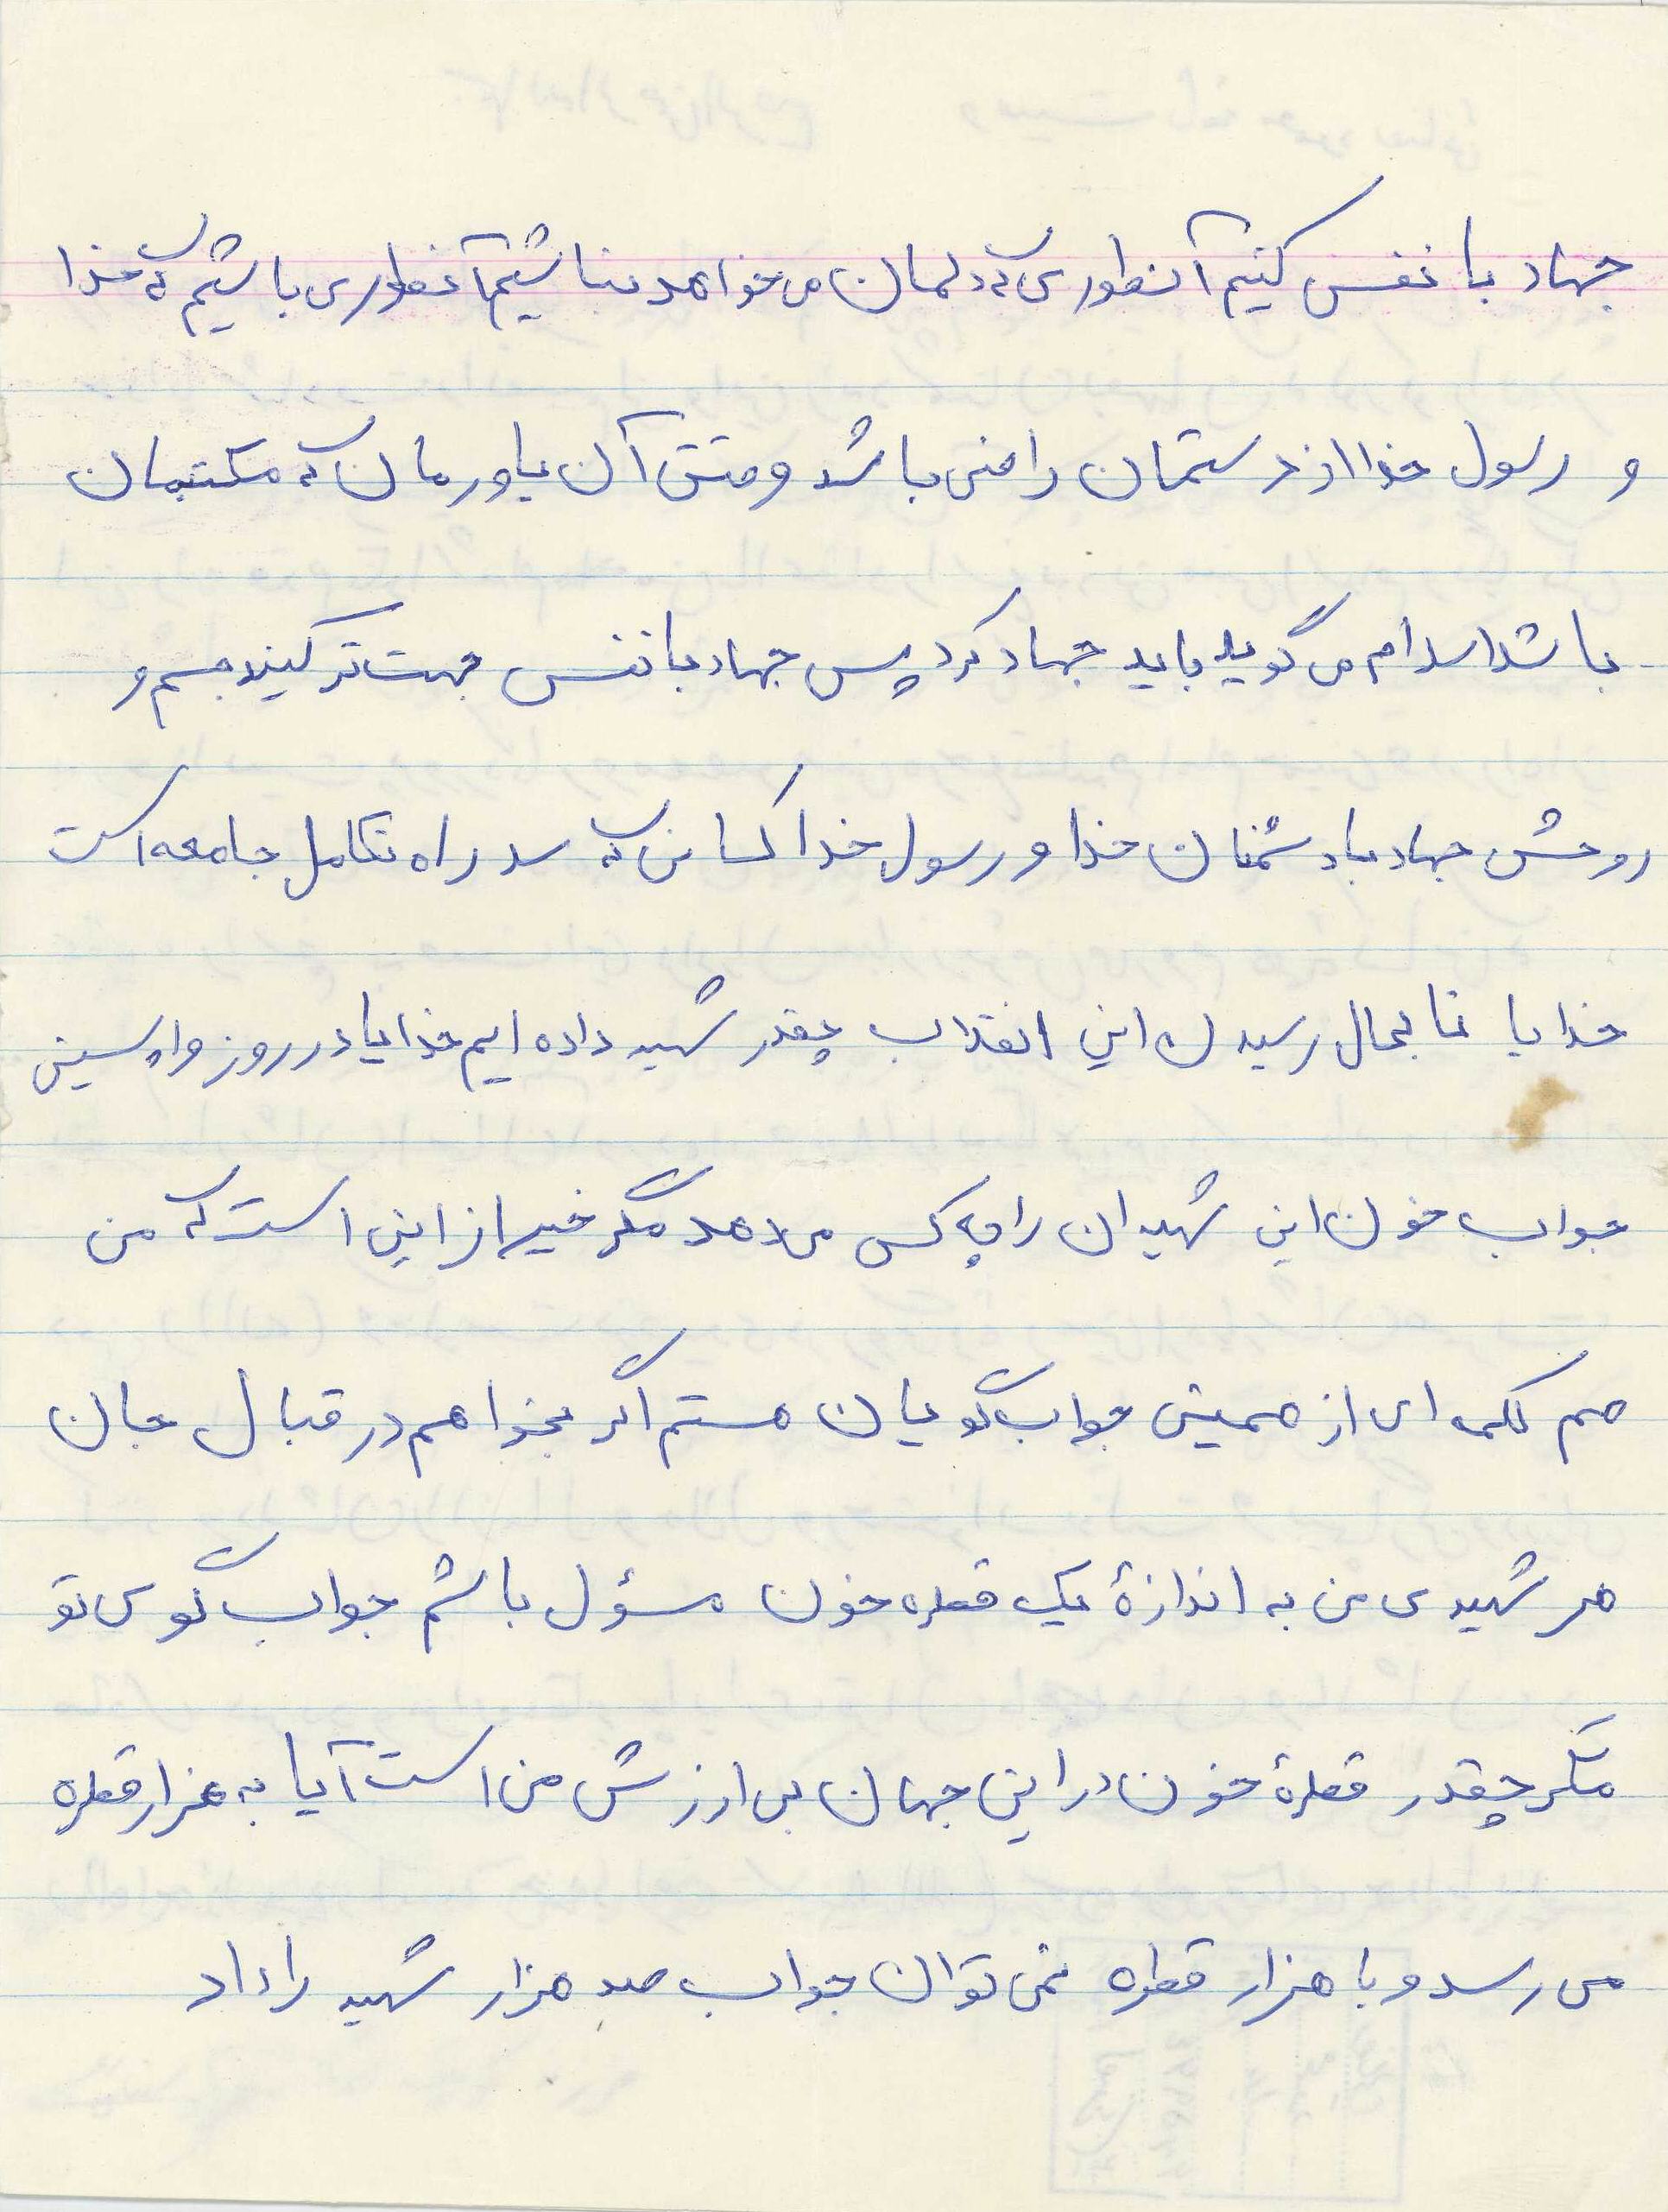 جهاد با نفس کنیم آنطوری که دلمان می خواهد نباشیم آنطوری باشیم که خدا
و رسول خدا از دستمان راضی باشد و متق آن یاورمان که مکتبمان
باشد اسلام می گوید باید جهاد کرد پس جهاد با نفس جهت تزکیه جسم و
روحش جهاد با دشمنان خدا و رسول خدا کسانی که سد راه تکامل جامعه است
خدایا تا بحال رسیدن این انقلاب چقدر شهید داده ایم خدایا در روز واپسین
جواب خون این شهیدان را چه کس می دهد مگر غیر از این است که من
هم تکه ای از همین جواب گویان هستم اگر بخواهم در قبال جان
هر شهیدی من به اندازهٔ یک قطره خون مسؤل باشم جواب گوی تو
مگر چقدر قطرهٔ خون در این جهان بی ارزش من است آیا به هزار قطره
می رسد و با هزار قطره نمی توان جواب صد هزار شهید را داد